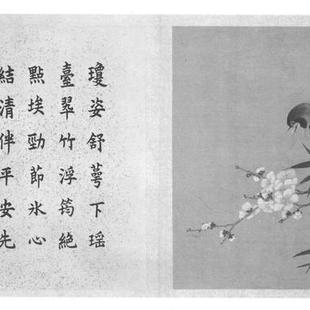 瓊姿舒萼下瑶
臺翠竹浮筠絶
點埃勁節氷心
結清伴平安先